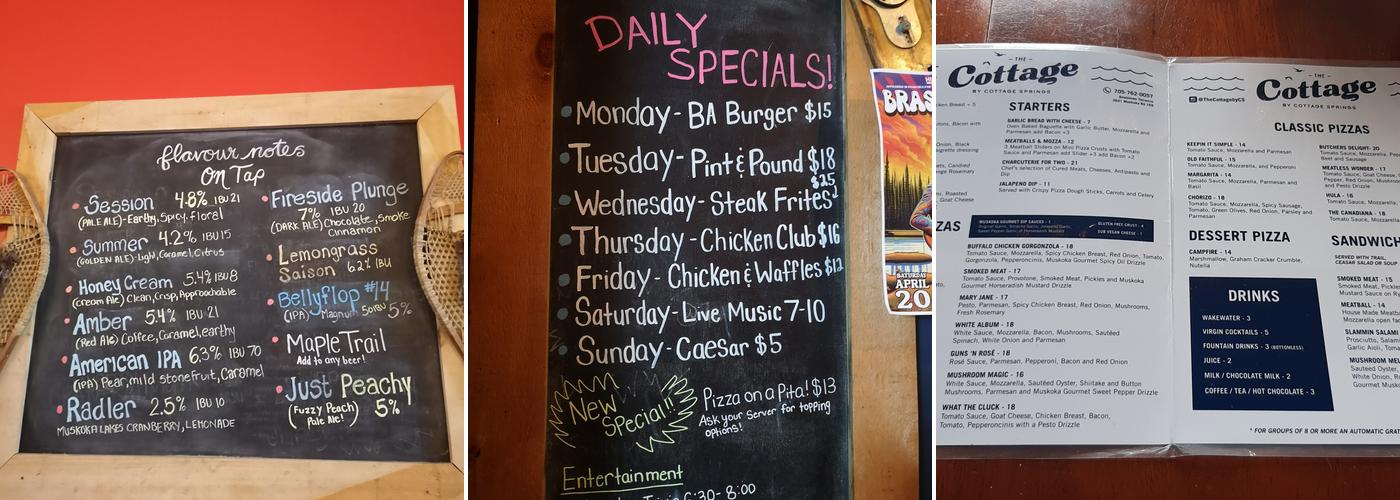 flavour notes
ON Tap
Session 4.8% IBU 21
(PALE ALE)-Earthy, Spicy, floral
Summer 4.2% IBU 15
(GOLDEN ALE)-Light, Caramel, Citrus
Honey Cream 5.4% IBU 8
(Cream Ale) Clean, Crisp, Approachable
Amber 5.4% IBU 21
(Red Ale) Coffee, Caramel, earthy
American IPA 6.3% IBU 70
(IPA) Pear, mild stonefruit, Caramel
Radler 2.5% IBU 10
MUSKOKA LAKES CRANBERRY, LEMONADE
Fireside Plunge
7% IBU 20
(DARK ALE) Chocolate, Smoke
Cinnamon
Lemongrass
Saison 6.2% IBU
Bellyflop #14
(IPA) Magnum 50 IBU 5%
Maple Trail
Add to any beer!
Just Peachy
(Fuzzy Peach) 5%
Pale Ale!
DAILY
SPECIALS!
Monday - BA Burger $15
Tuesday - Pint & Pound $18
$25
Wednesday - Steak Frites
Thursday - Chicken Club $16
Friday - Chicken & Waffles $12
Saturday - Live Music 7-10
Sunday - Caesar $5
New
Special!!
Pizza on a Pita! $13
Ask your Server for topping
options!
Entertainment
Trivia 6:30 - 8:00
BRAS
SATURDAY
APRIL
20
THE
Cottage
BY COTTAGE SPRINGS
705-762-0057
STARTERS
GARLIC BREAD WITH CHEESE - 7
Oven Baked Baguette with Garlic Butter, Mozzarella and
Parmesan add Bacon +3
MEATBALLS & MOZZA - 12
3 Meatball Sliders on Mini Pizza Crusts with Tomato
Sauce and Parmesan add Slider +3 add Bacon +2
CHARCUTERIE FOR TWO - 21
Chef's selection of Cured Meats, Cheeses, Antipasto and
Dip
JALAPENO DIP - 11
Served with Crispy Pizza Dough Sticks, Carrots and Celery
icken Breast + 5
Tons, Bacon with
Onion, Black
aigrette dressing
ets, Candied
range Rosemary
ni, Roasted
Goat Cheese
ZAS
MUSKOKA GOURMET DIP SAUCES - 1
GLUTEN FREE CRUST - 4
SUB VEGAN CHEESE - 1
BUFFALO CHICKEN GORGONZOLA - 18
Tomato Sauce, Mozzarella, Spicy Chicken Breast, Red Onion, Tomato,
Gorgonzola, Pepperoncinis, Muskoka Gourmet Spicy Oil Drizzle
SMOKED MEAT - 17
Tomato Sauce, Provolone, Smoked Meat, Pickles and Muskoka
Gourmet Horseradish Mustard Drizzle
MARY JANE - 17
Pesto, Parmesan, Spicy Chicken Breast, Red Onion, Mushrooms,
Fresh Rosemary
WHITE ALBUM - 18
White Sauce, Mozzarella, Bacon, Mushrooms, Sautéed
Spinach, White Onion and Parmesan
GUNS 'N ROSÉ - 18
Rosé Sauce, Parmesan, Pepperoni, Bacon and Red Onion
MUSHROOM MAGIC - 16
White Sauce, Mozzarella, Sautéed Oyster, Shiitake and Button
Mushrooms, Parmesan and Muskoka Gourmet Sweet Pepper Drizzle
WHAT THE CLUCK - 18
Tomato Sauce, Goat Cheese, Chicken Breast, Bacon,
Tomato, Pepperoncinis with a Pesto Drizzle
@TheCottagebyCS
THE
Cottage
BY COTTAGE SPRINGS
CLASSIC PIZZAS
KEEPIN IT SIMPLE - 14
Tomato Sauce, Mozzarella and Parmesan
OLD FAITHFUL - 15
Tomato Sauce, Mozzarella, and Pepperoni
MARGARITA - 14
Tomato Sauce, Mozzarella, Parmesan and
Basil
CHORIZO - 18
Tomato Sauce, Mozzarella, Spicy Sausage,
Tomato, Green Olives, Red Onion, Parsley and
Parmesan
BUTCHERS DELIGHT - 20
Tomato Sauce, Mozzarella,
Beef and Sausage
MEATLESS WONDER - 17
Tomato Sauce, Goat Cheese,
Pepper, Red Onion, Mushroom
and Pesto Drizzle
HULA - 16
Tomato Sauce, Mozzarella,
THE CANADIANA - 18
Tomato Sauce, Mozzarella,
DESSERT PIZZA
CAMPFIRE - 14
Marshmallow, Graham Cracker Crumble,
Nutella
SANDWICH
SERVED WITH TRAIL,
CEASAR SALAD OR SOUP
SMOKED MEAT - 15
Smoked Meat, Pickles
Mustard Sauce on Ry
MEATBALL - 14
House Made Meatba
Mozzarella open fac
SLAMMIN SALAMI
Prosciutto, Salami
Garlic Aioli, Toma
MUSHROOM MEL
Sauteed Oyster,
White Onion, R
Gourmet Musk
DRINKS
WAKEWATER - 3
VIRGIN COCKTAILS - 5
FOUNTAIN DRINKS - 3 (BOTTOMLESS)
JUICE - 2
MILK / CHOCOLATE MILK - 2
COFFEE / TEA / HOT CHOCOLATE - 3
* FOR GROUPS OF 8 OR MORE AN AUTOMATIC GRAT